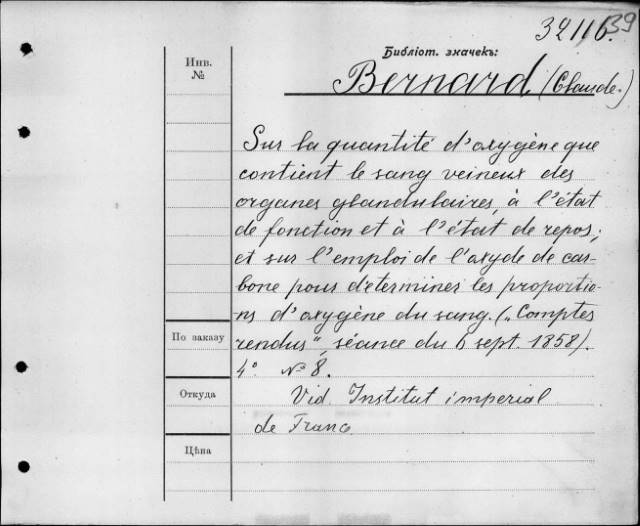 32116. 39
Библіот. значекъ:
Инв.
№
Bernard (Claude.)
Sur la quantité d'oxygène que
contient le sang veineux des
organes glandulaires, à l'état
de fonction et à l'état de repos;
et sur l'emploi de l'oxyde de car-
bone pour déterminer les proportio-
ns d'oxygène du sang. („Comptes
По заказу
rendus", séance du 6 sept. 1858).
4°. № 8.
Откуда
Vid. Institut imperial
de Franc
Цѣна